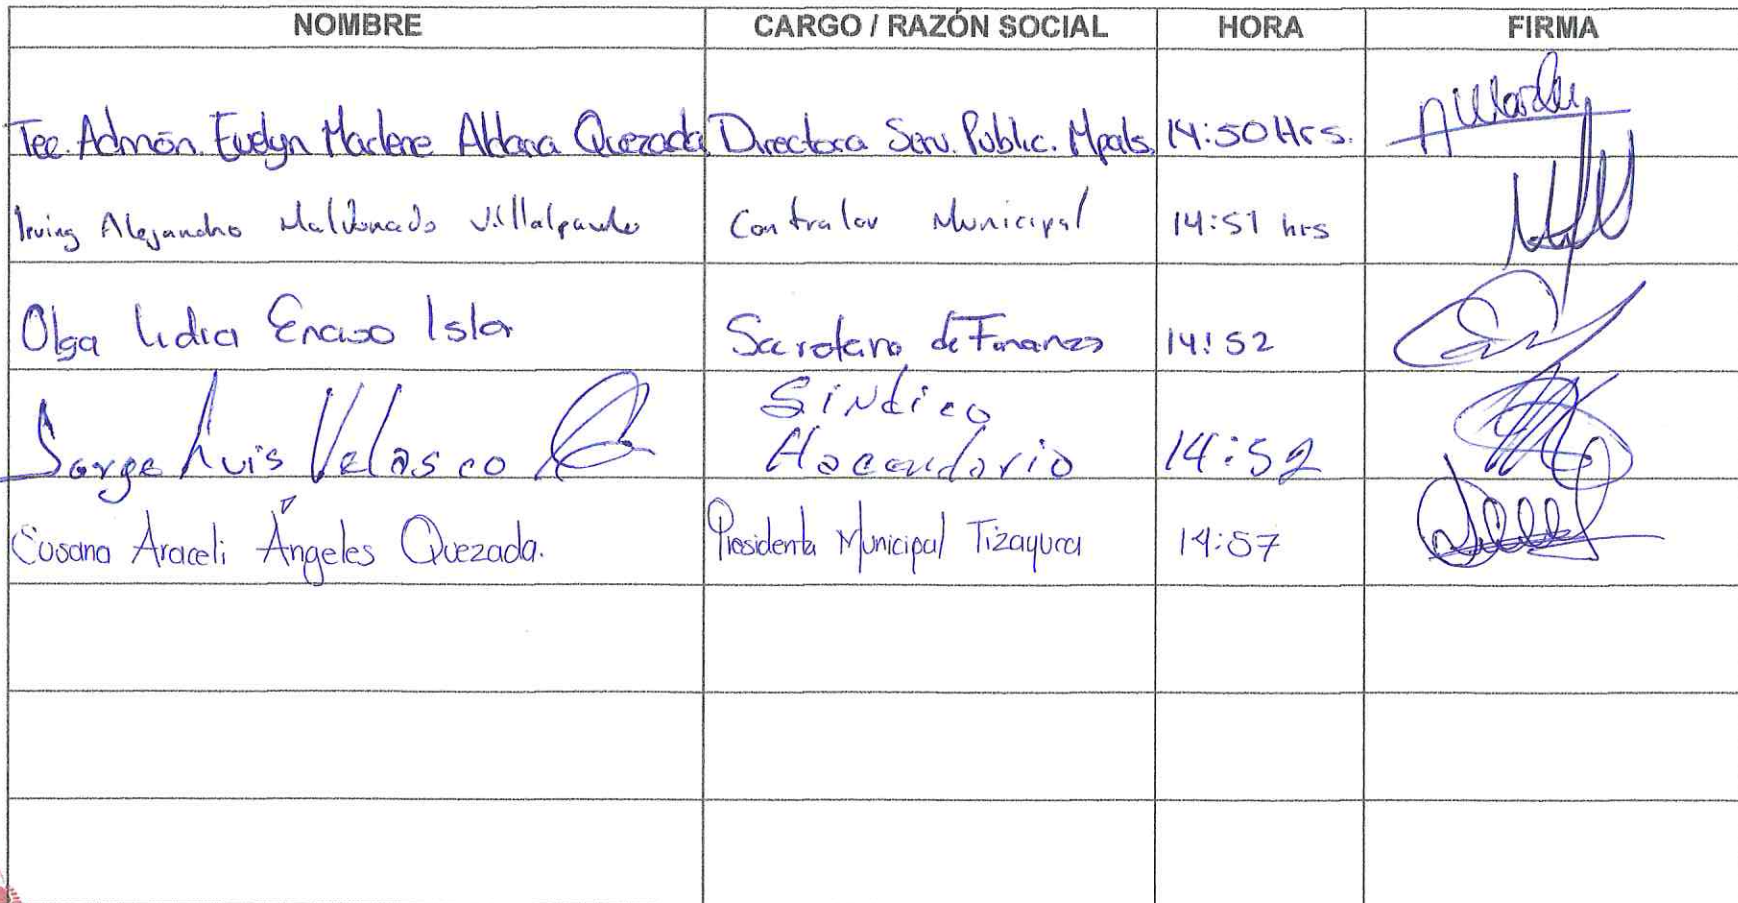 NOMBRE CARGO / RAZÓN SOCIAL HORA FIRMA
Tec. Admón. Evelyn Marlene Aldana Quezada Directora Serv. Public. Mpals. 14:50 Hrs.
Irving Alejandro Maldonado Villalpando Contralor Municipal 14:51 hrs
Olga Lidia Enciso Isla Secretaria de Finanzas 14:52
Jorge Luis Velasco Síndico
Hacendario 14:52
Susana Araceli Ángeles Quezada. Presidenta Municipal Tizayuca 14:57